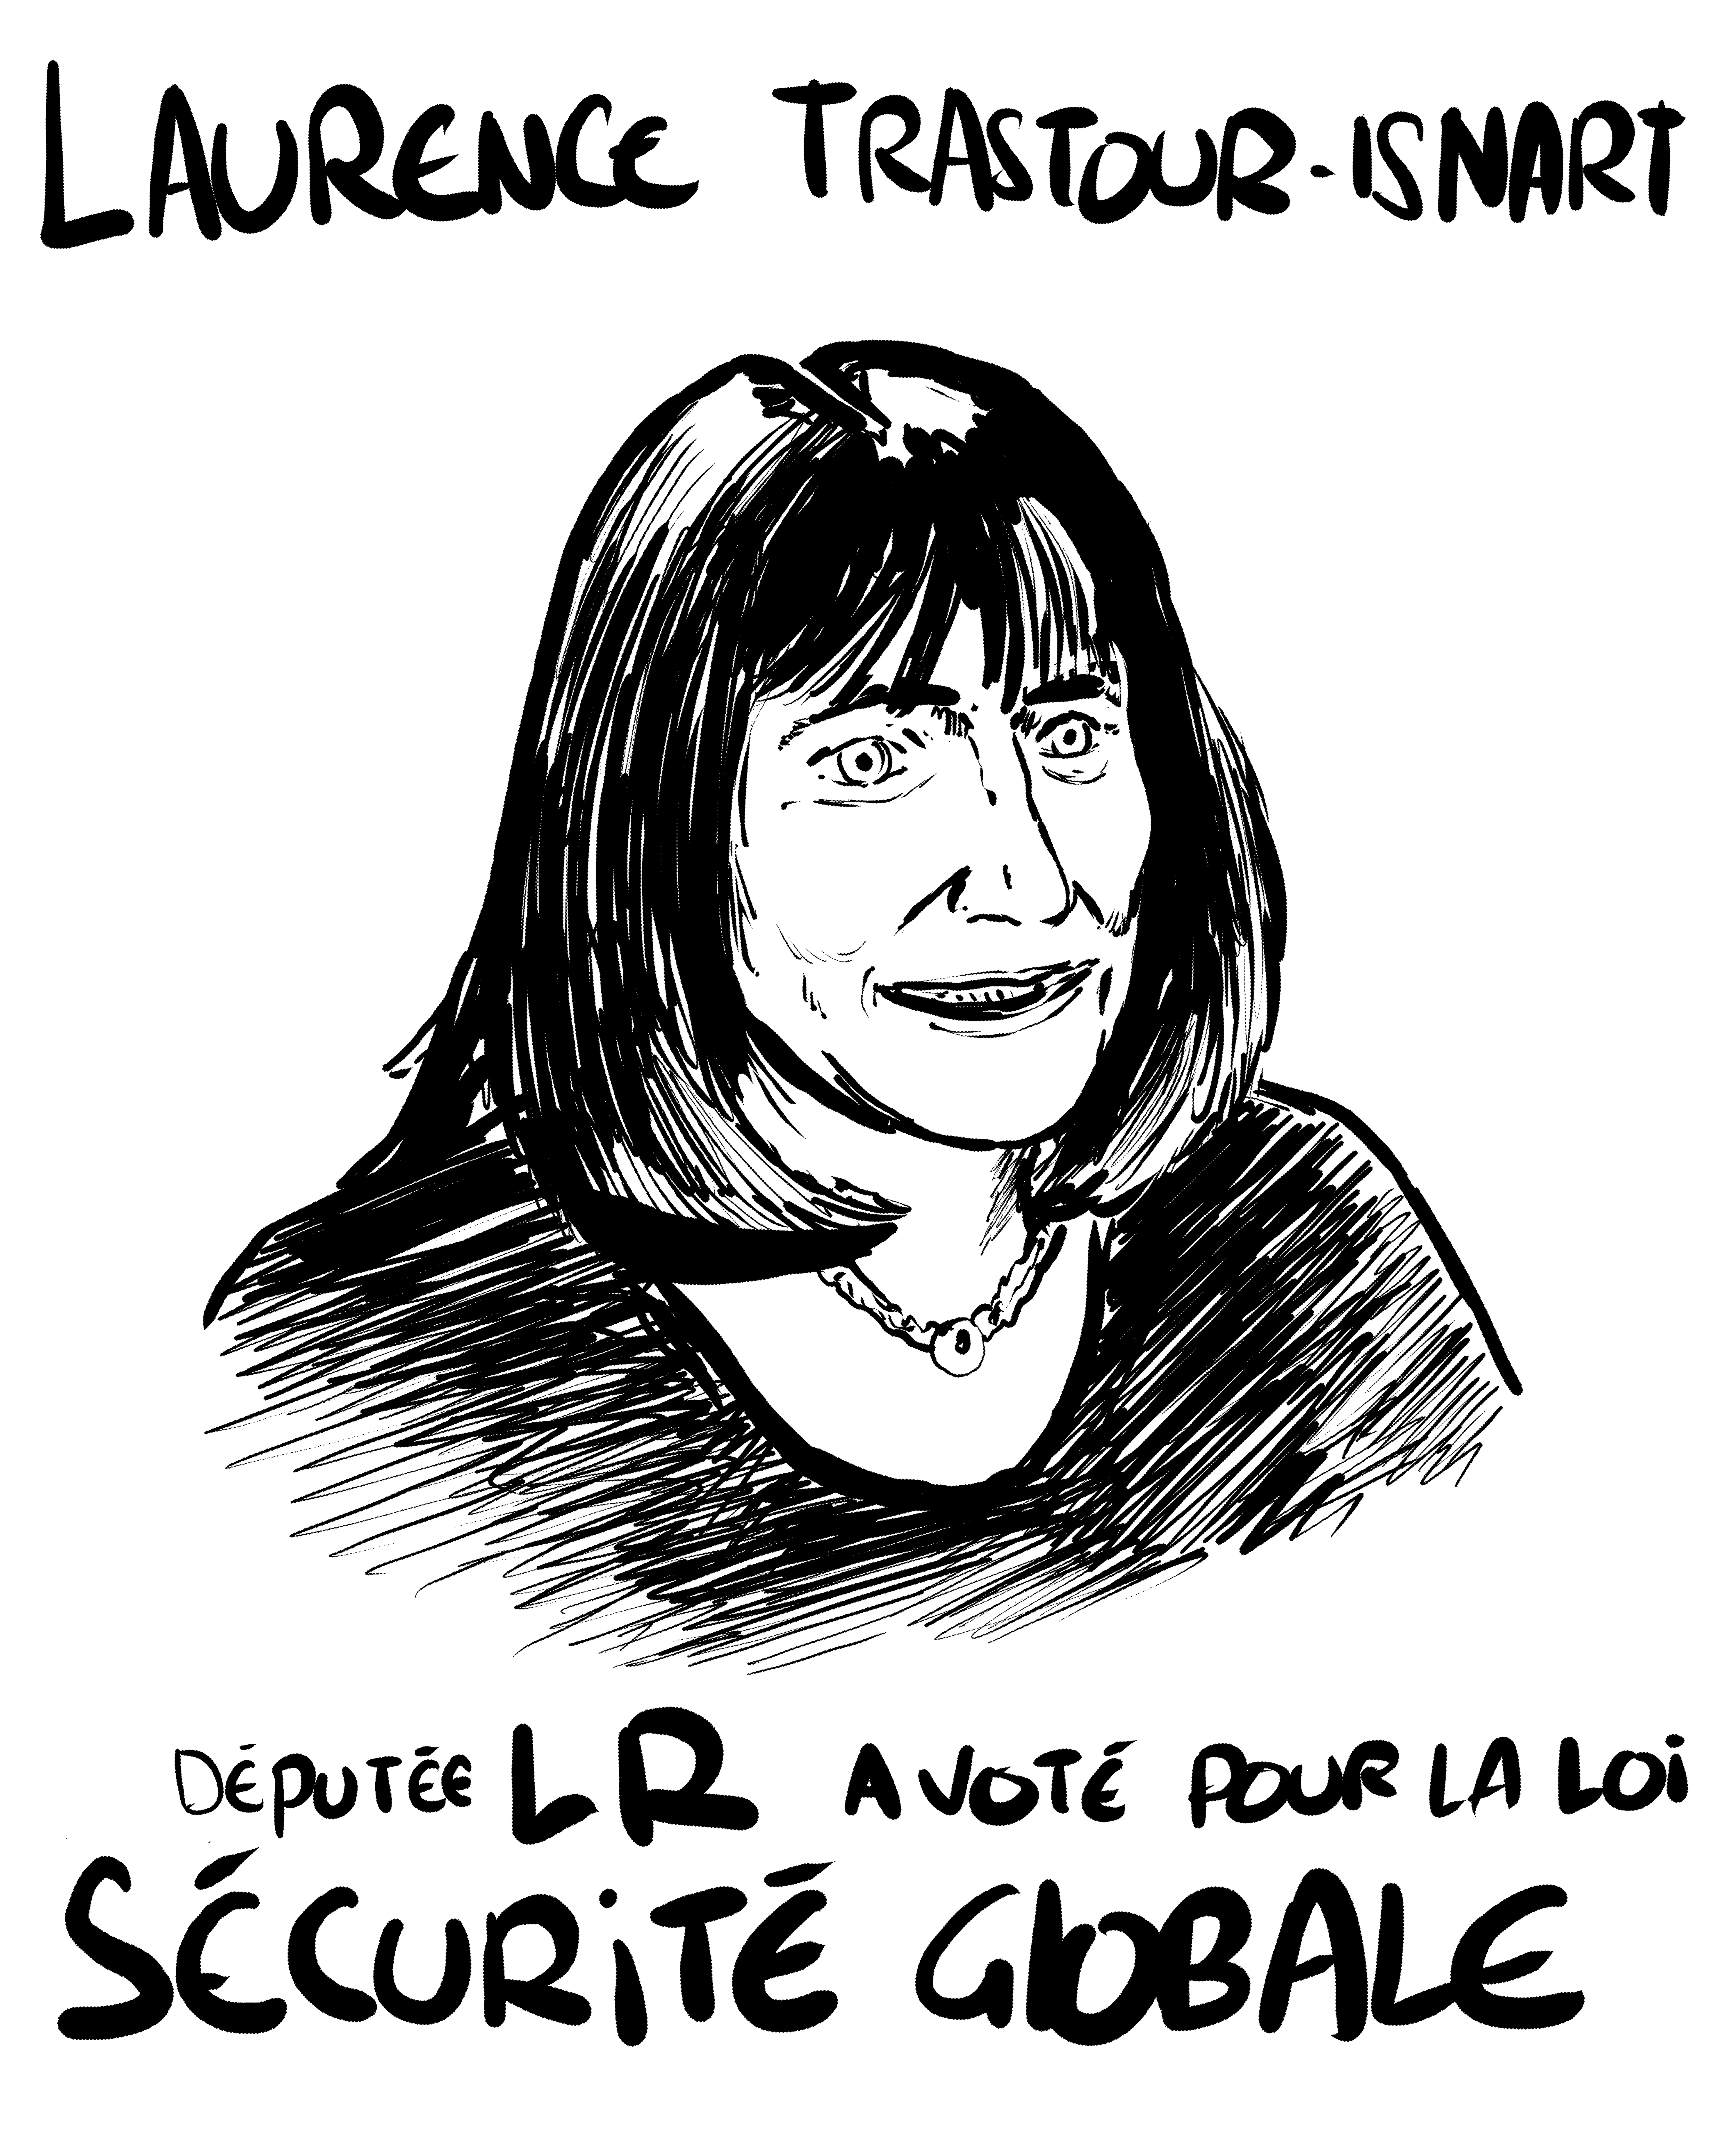 LAURENCE TRASTOUR-ISNART
DÉPUTÉE LR A VOTÉ POUR LA LOi
SÉCURiTÉ GlOBALE